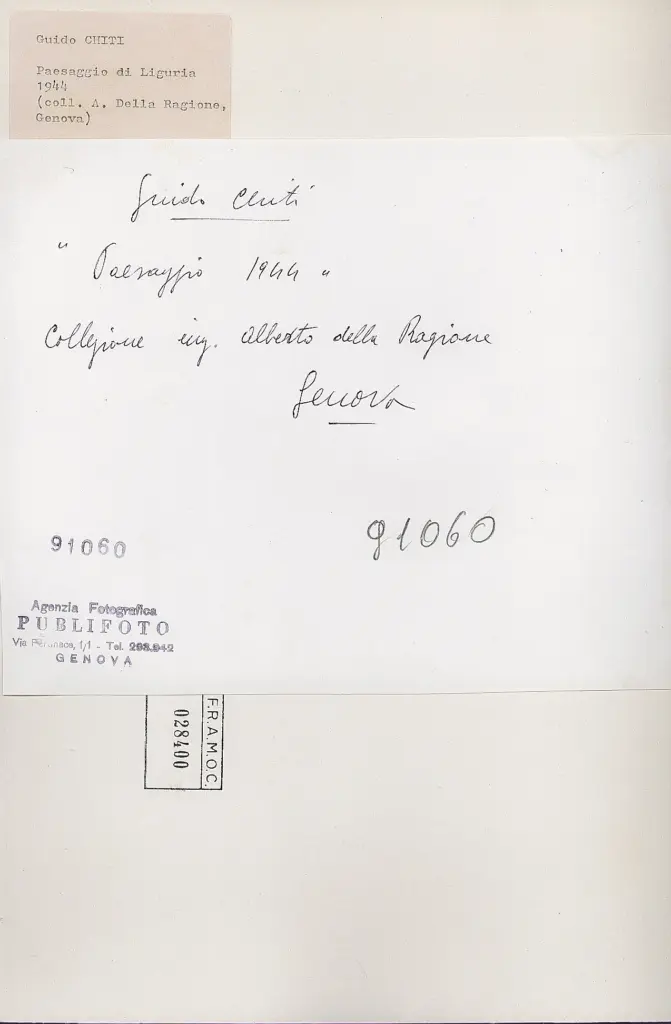 Guido CHITI
Paesaggio di Liguria
1944
(coll. A. Della Ragione,
Genova)
Guido Chiti
" Paesaggio 1944 "
Collezione ing. Alberto della Ragione
Genova
91060
91060
Agenzia Fotografica
PUBLIFOTO
Via 1/1 - Tel.
GENOVA
F.R.A.M.O.C.
028400